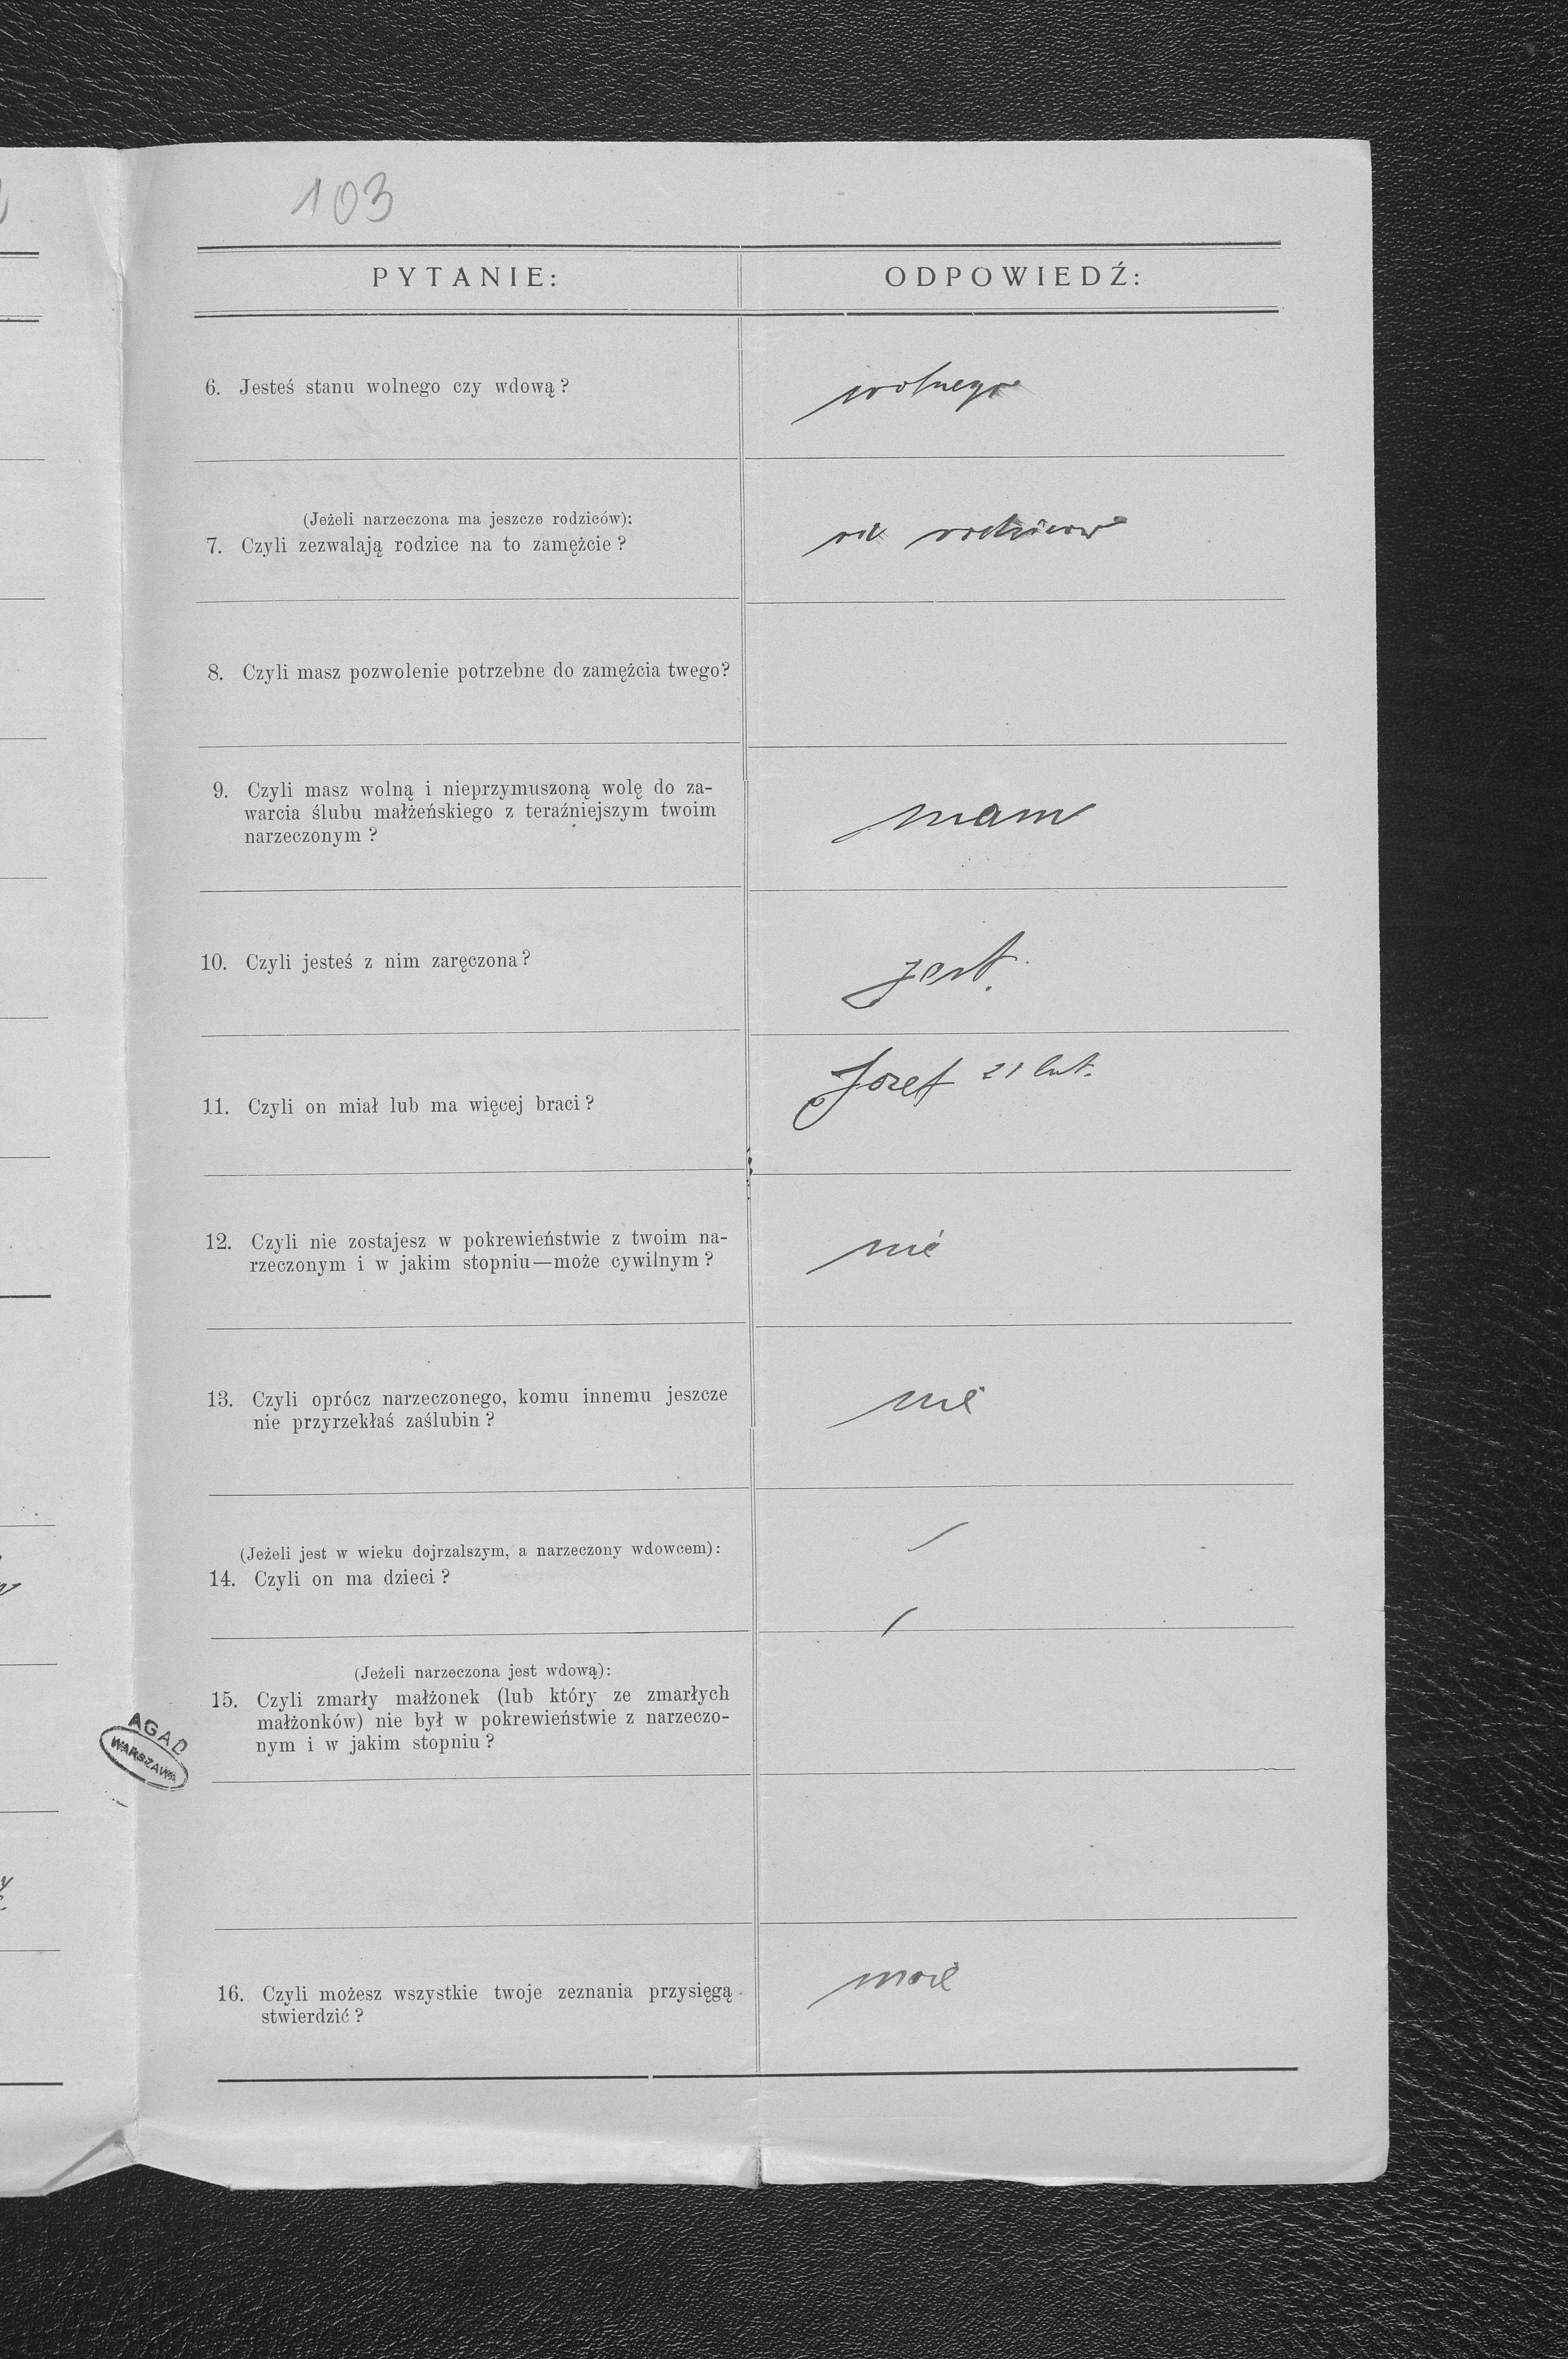 103
PYTANIE:
ODPOWIEDŹ:
6. Jesteś stanu wolnego czy wdową?
wolnego
(Jeżeli narzeczona ma jeszcze rodziców):
7. Czyli zezwalają rodzice na to zamężcie?
rodziców
8. Czyli masz pozwolenie potrzebne do zamężcia twego?
9. Czyli masz wolną i nieprzymuszoną wolę do za-
warcia ślubu małżeńskiego z teraźniejszym twoim
narzeczonym?
mam
10. Czyli jesteś z nim zaręczona?
jest.
11. Czyli on miał lub ma więcej braci?
Jozef 21 lat.
12. Czyli nie zostajesz w pokrewieństwie z twoim na-
rzeczonym i w jakim stopniu—może cywilnym?
nie
13. Czyli oprócz narzeczonego, komu innemu jeszcze
nie przyrzekłaś zaślubin?
nie
(Jeżeli jest w wieku dojrzalszym, a narzeczony wdowcem):
14. Czyli on ma dzieci?
(Jeżeli narzeczona jest wdową):
15. Czyli zmarły małżonek (lub który ze zmarłych
małżonków) nie był w pokrewieństwie z narzeczo-
nym i w jakim stopniu?
AGAD
WARSZAWA
16. Czyli możesz wszystkie twoje zeznania przysięgą
stwierdzić?
może